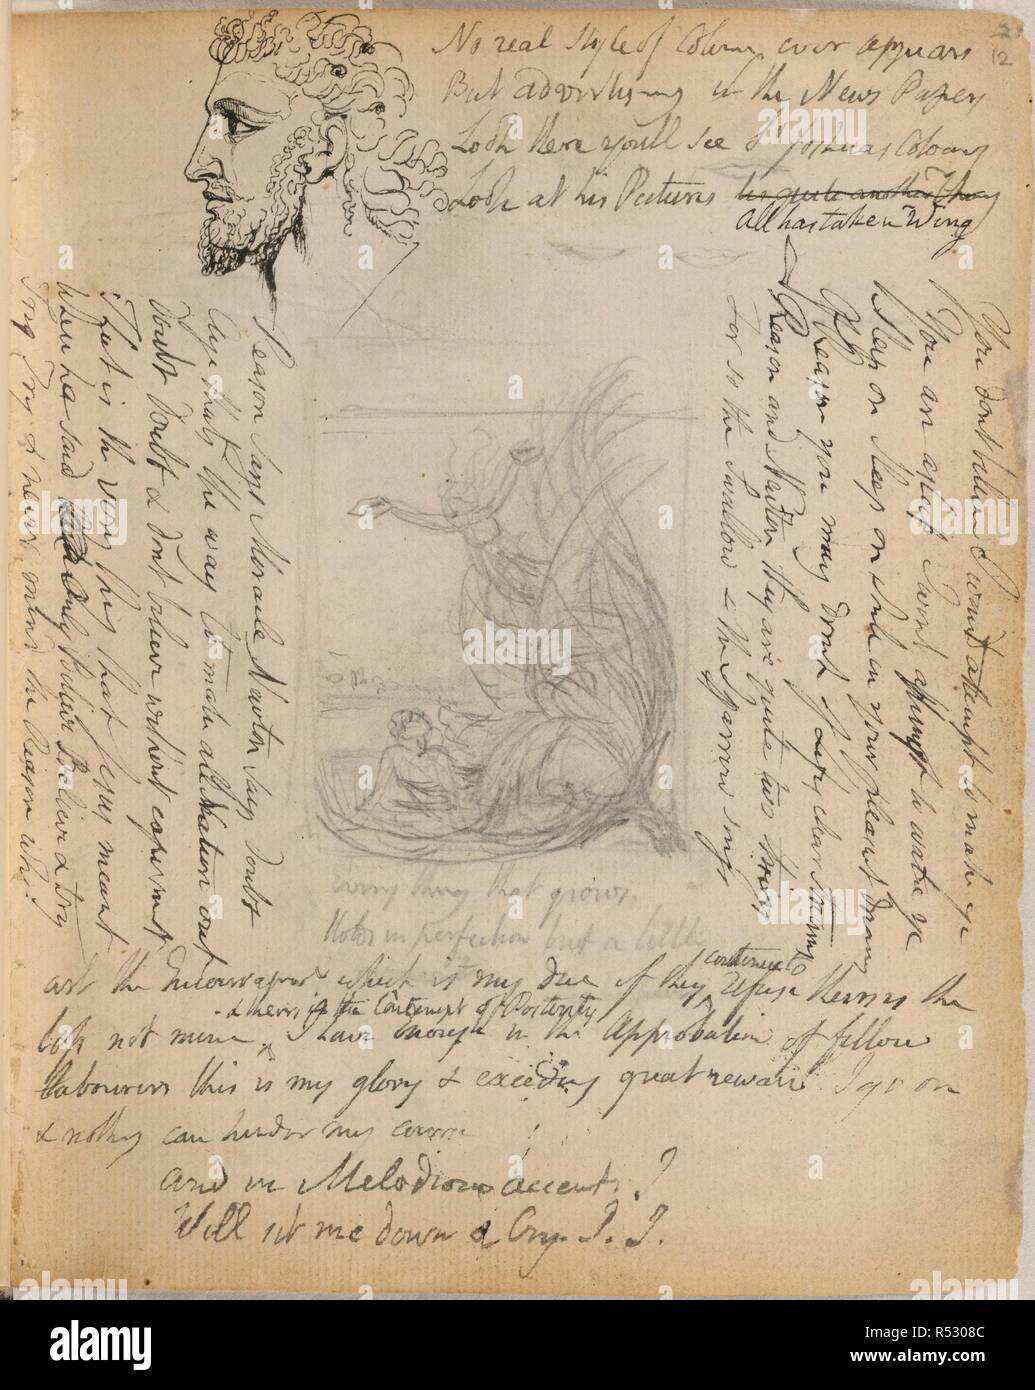 21
12
No real Style of Colouring ever appears
But advertising in the News Papers
Look there youll see Sr Joshuas Colouring
Look at his Pictures tis quite another thing
All has taken Wing
seven
You dont believe I wont attempt to make ye
You are asleep I wont attempt to wake ye
Sleep on Sleep on while in your pleasant dreams
Of Reason you may drink of Lifes clear streams
Reason and Newton they are quite two things
For so the Swallow & the Sparrow sings
Reason says Miracle, Newton says Doubt
Aye thats the way to make all Nature out
Doubt Doubt & dont believe without experiment
That is the very thing that Jesus meant
When he said Only Believe Believe & try
Try Try & never mind the Reason why
every thing that grows
Holds in perfection but a little
and the Encouragement which is my due if they continue to Refuse theirs is the
loss not mine & theirs is the Contempt of Posterity I have Enough in the Approbation of fellow
labourers this is my glory & exceeding great reward I go on
& nothing can hinder my course
and in Melodious accents I
Will sit me down & Cry. I. I.
alamy
a
Image ID: R5308C
www.alamy.com